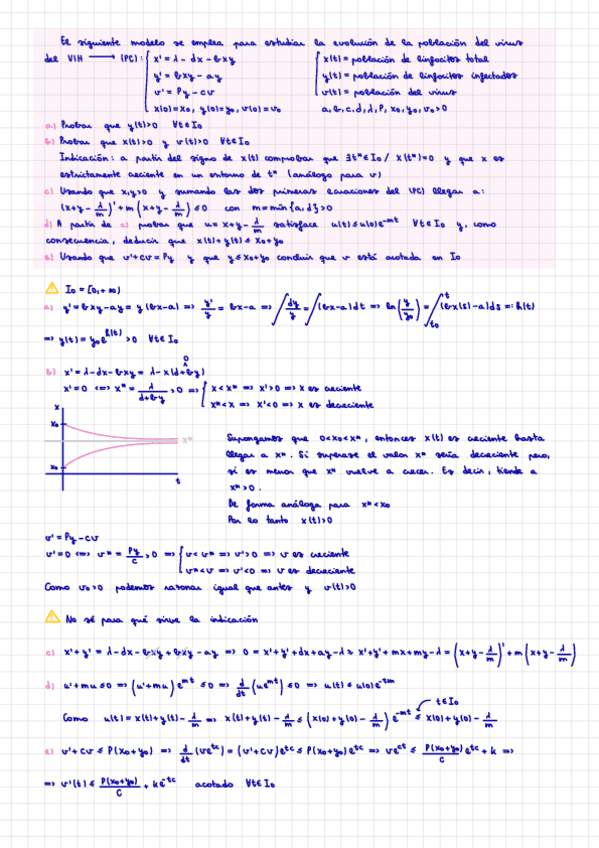 El siguiente modelo se emplea para estudiar la evolución de la población del virus
del VIH ⟶ (PC): { x' = λ - dx - bxy { x(t) = población de linfocitos total
y' = bxy - ay y(t) = población de linfocitos infectados
v' = Py - cv v(t) = población del virus
x(0)=x₀, y(0)=y₀, v(0)=v₀ a, b, c, d, λ, P, x₀, y₀, v₀ > 0
a) Probar que y(t)>0 ∀t∈I₀
b) Probar que x(t)>0 y v(t)>0 ∀t∈I₀
Indicación: a partir del signo de x(t) comprobar que ∃t*∈I₀ / x(t*)=0 y que x es
estrictamente creciente en un entorno de t* (análogo para v)
c) Usando que x,y>0 y sumando las dos primeras ecuaciones del (PC) llegar a:
(x+y-λ/m)' + m(x+y-λ/m) ≤ 0 con m = min{a,d} > 0
d) A partir de c) probar que u = x+y-λ/m satisface u(t) ≤ u(0)e^(-mt) ∀t∈I₀ y, como
consecuencia, deducir que x(t)+y(t) ≤ x₀+y₀
e) Usando que v'+cv = Py y que y ≤ x₀+y₀ concluir que v está acotada en I₀
⚠ I₀ = [0,+∞)
a) y' = bxy - ay = y(bx-a) => y'/y = bx-a => ∫dy/y = ∫(bx-a)dt => ln(y/y₀) = ∫_{t₀}^{t}(bx(s)-a)ds =: h(t)
=> y(t) = y₀e^{h(t)} > 0 ∀t∈I₀
b) x' = λ - dx - bxy = λ - x(d+by)
x' = 0 <=> x* = λ/(d+by) > 0 => { x<x* => x'>0 => x es creciente
x*<x => x'<0 => x es decreciente
x
x₀
x*
x₀
t
Supongamos que 0<x₀<x*, entonces x(t) es creciente hasta
llegar a x*. Si superase el valor x* sería decreciente pero,
si es menor que x* vuelve a crecer. Es decir, tiende a
x*>0.
De forma análoga para x*<x₀
Por lo tanto x(t)>0
v' = Py - cv
v' = 0 <=> v* = Py/c > 0 => { v<v* => v'>0 => v es creciente
v*<v => v'<0 => v es decreciente
Como v₀>0 podemos razonar igual que antes y v(t)>0
⚠ No sé para qué sirve la indicación
c) x'+y' = λ - dx - bxy + bxy - ay => 0 = x'+y'+dx+ay-λ ≥ x'+y'+mx+my-λ = (x+y-λ/m)' + m(x+y-λ/m)
d) u'+mu ≤ 0 => (u'+mu)e^{mt} ≤ 0 => d/dt(ue^{mt}) ≤ 0 => u(t) ≤ u(0)e^{-tm}
t∈I₀
Como u(t) = x(t)+y(t)-λ/m => x(t)+y(t)-λ/m ≤ (x(0)+y(0)-λ/m)e^{-mt} ≤ x(0)+y(0)-λ/m
e) v'+cv ≤ P(x₀+y₀) => d/dt(ve^{tc}) = (v'+cv)e^{tc} ≤ P(x₀+y₀)e^{tc} => ve^{ct} ≤ P(x₀+y₀)/c e^{tc} + k =>
=> v'(t) ≤ P(x₀+y₀)/c + ke^{-tc} acotado ∀t∈I₀